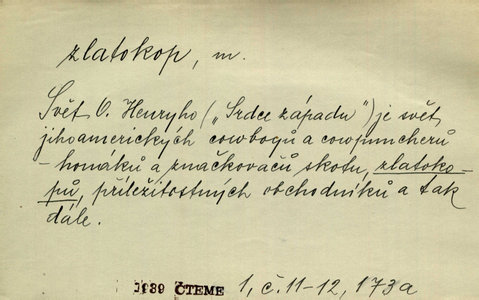 zlatokop, m.
Svět O. Henryho („Srdce západu") je svět
jihoamerických cowboyů a cowpuncherů
- honáků a značkovačů skotu, zlatoko-
pů, příležitostných obchodníků a tak
dále.
1939 ČTEME 1, č. 11-12, 173a